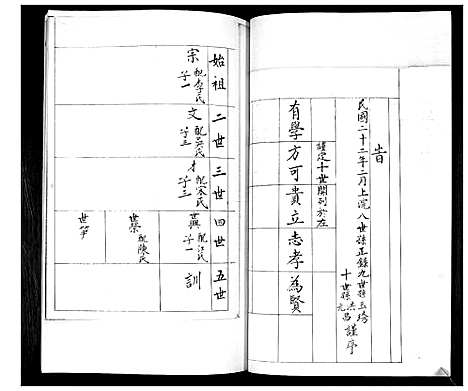 告
民國二十二年二月上浣八世孫正錄九世孫玉琇
十世孫杰昌元謹序
謹定十世開列於左
有學方可貴立志孝為賢
始祖 二世 三世 四世 五世
宗 配李氏 子一
文 配吳氏 子三
才 配宋氏 子三
世興 配江氏 子一
世榮 配陳氏
世箏
訓